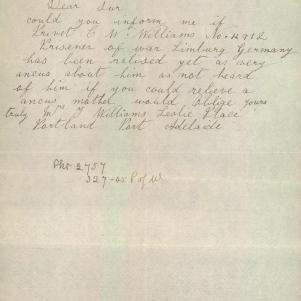 Dear Sur
could you inform me if
Privet C W Williams No. 4912
Prisener of war Limburg Germany
has been relised yet as very
ancus about him as not heard
of him if you could relieve a
ancus mother would oblige yours
truly Mrs J Williams Leslie Place
Portland Port Adelaide
2757
P of W